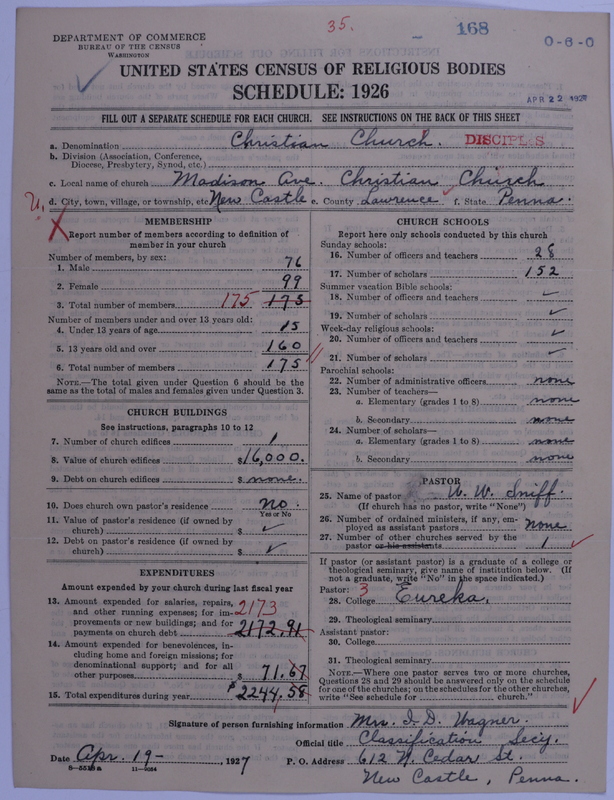 35.
168
0-6-0
DEPARTMENT OF COMMERCE
BUREAU OF THE CENSUS
WASHINGTON
UNITED STATES CENSUS OF RELIGIOUS BODIES
SCHEDULE: 1926
APR 22 1927
FILL OUT A SEPARATE SCHEDULE FOR EACH CHURCH. SEE INSTRUCTIONS ON THE BACK OF THIS SHEET
a. Denomination Christian Church. DISCIPLES
b. Division (Association, Conference,
Diocese, Presbytery, Synod, etc.)
c. Local name of church Madison Ave. Christian Church
U. d. City, town, village, or township, etc. New Castle e. County Lawrence f. State Penna.
MEMBERSHIP
Report number of members according to definition of
member in your church
Number of members, by sex:
1. Male 76
2. Female 99
3. Total number of members 175 175
Number of members under and over 13 years old:
4. Under 13 years of age 15
5. 13 years old and over 160
6. Total number of members 175
NOTE.—The total given under Question 6 should be
same as the total of males and females given under Question 3.
CHURCH BUILDINGS
See instructions, paragraphs 10 to 12
7. Number of church edifices 1
8. Value of church edifices $16,000.
9. Debt on church edifices $ none.
10. Does church own pastor's residence no.
Yes or No
11. Value of pastor's residence (if owned by
church) $ ✓
12. Debt on pastor's residence (if owned by
church) $ ✓
EXPENDITURES
Amount expended by your church during last fiscal year
13. Amount expended for salaries, repairs,
and other running expenses; for im-
provements or new buildings; and for
payments on church debt 2173 2172.91
14. Amount expended for benevolences, in-
cluding home and foreign missions; for
denominational support; and for all
other purposes $ 71.67
15. Total expenditures during year $ 2244.58
CHURCH SCHOOLS
Report here only schools conducted by this church
Sunday schools:
16. Number of officers and teachers 28
17. Number of scholars 152
Summer vacation Bible schools:
18. Number of officers and teachers ✓
19. Number of scholars ✓
Week-day religious schools:
20. Number of officers and teachers ✓
21. Number of scholars ✓
Parochial schools:
22. Number of administrative officers none
23. Number of teachers—
a. Elementary (grades 1 to 8) none
b. Secondary none
24. Number of scholars—
a. Elementary (grades 1 to 8) none
b. Secondary none
PASTOR
25. Name of pastor W. W. Sniff.
(If church has no pastor, write "None")
26. Number of ordained ministers, if any, em-
ployed as assistant pastors none
27. Number of other churches served by the
pastor or his assistants 1
If pastor (or assistant pastor) is a graduate of a college or
theological seminary, give name of institution below. (If
not a graduate, write "No" in the space indicated.)
Pastor: 3
28. College Eureka.
29. Theological seminary
Assistant pastor:
30. College
31. Theological seminary
NOTE.—Where one pastor serves two or more churches,
Questions 28 and 29 should be answered only on the schedule
for one of the churches; on the schedules for the other churches,
write "See schedule for church."
Signature of person furnishing information Mrs. I. D. Wagner.
Official title Classification Secy.
Date Apr. 19- , 1927 P. O. Address 612 N. Cedar St.
11—9054 New Castle, Penna.